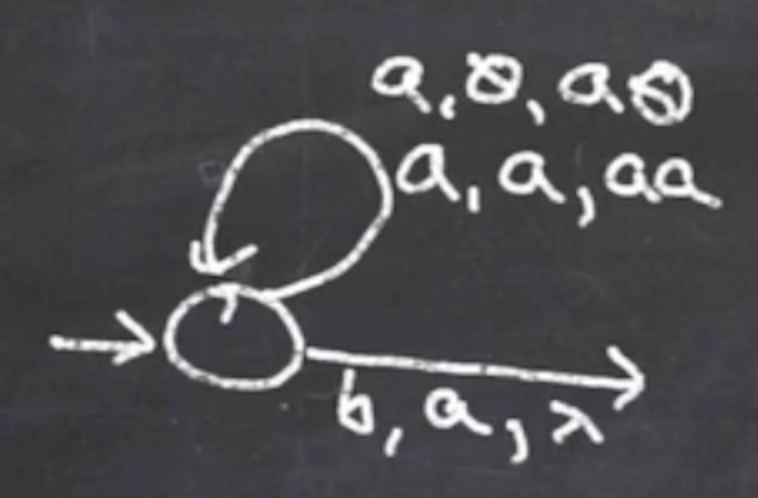 a, ⊗, a⊗
a, a, aa
b, a, λ